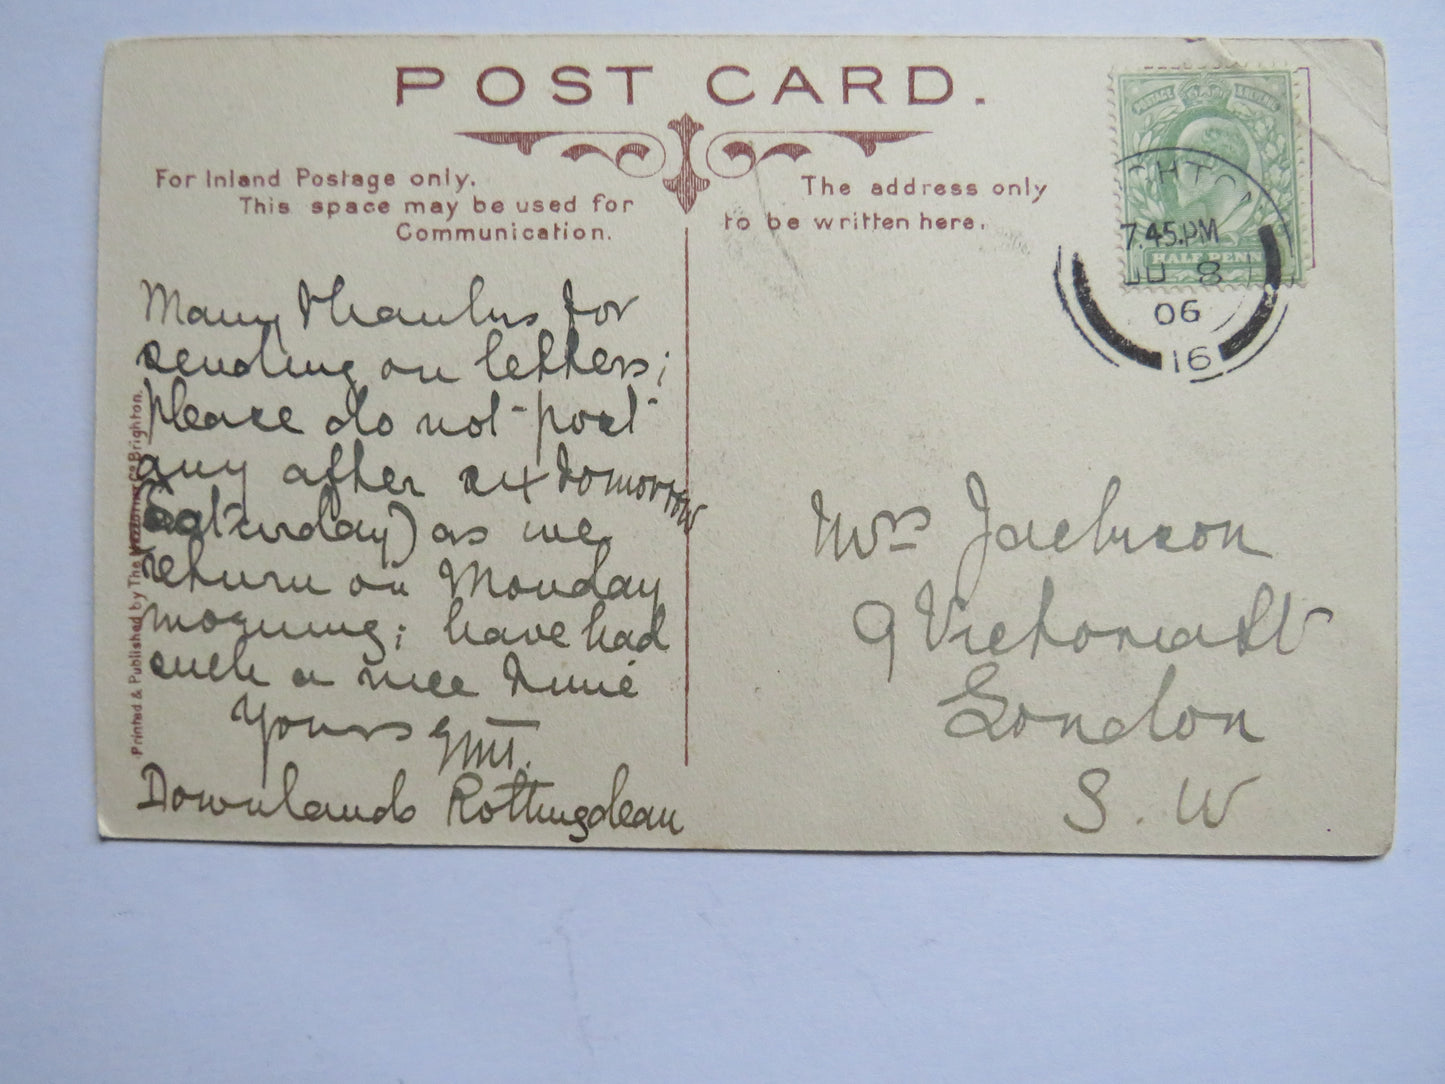 POST CARD.
For Inland Postage only.
This space may be used for
Communication.
The address only
to be written here.
POSTAGE REVENUE
HALF PENN
GHTON
7.45.PM
JU 8
06
16
Many thanks for
sending on letters;
please do not post
any after six tomorrow
Saturday) as we
return on Monday
morning; have had
such a nice time
Yours
Downlands Rottingdean
Mrs Jackson
9 Victoria St
London
S. W
Printed & Published by The Mezzotint Co Brighton.